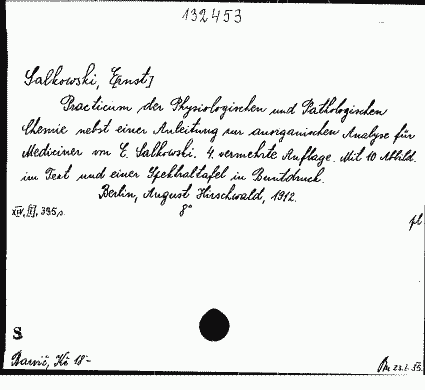 132453
Salkowski, E[rnst]
Practicum der Physiologischen und Pathologischen
Chemie nebst einer Anleitung zur anorganischen Analyse für
Mediciner von E. Salkowski. 4. vermehrte Auflage. Mit 10 Abbild.
im Text und einer Spektraltafel in Buntdruck.
Berlin, August Hirschwald, 1912.
XIV, [I], 395 s. 8°
S
18-